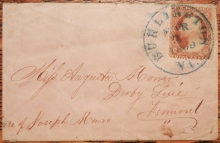 BURLINGTON
IA
Miss Augusta Mann
Derby Line
Vermont
care of Joseph Mann